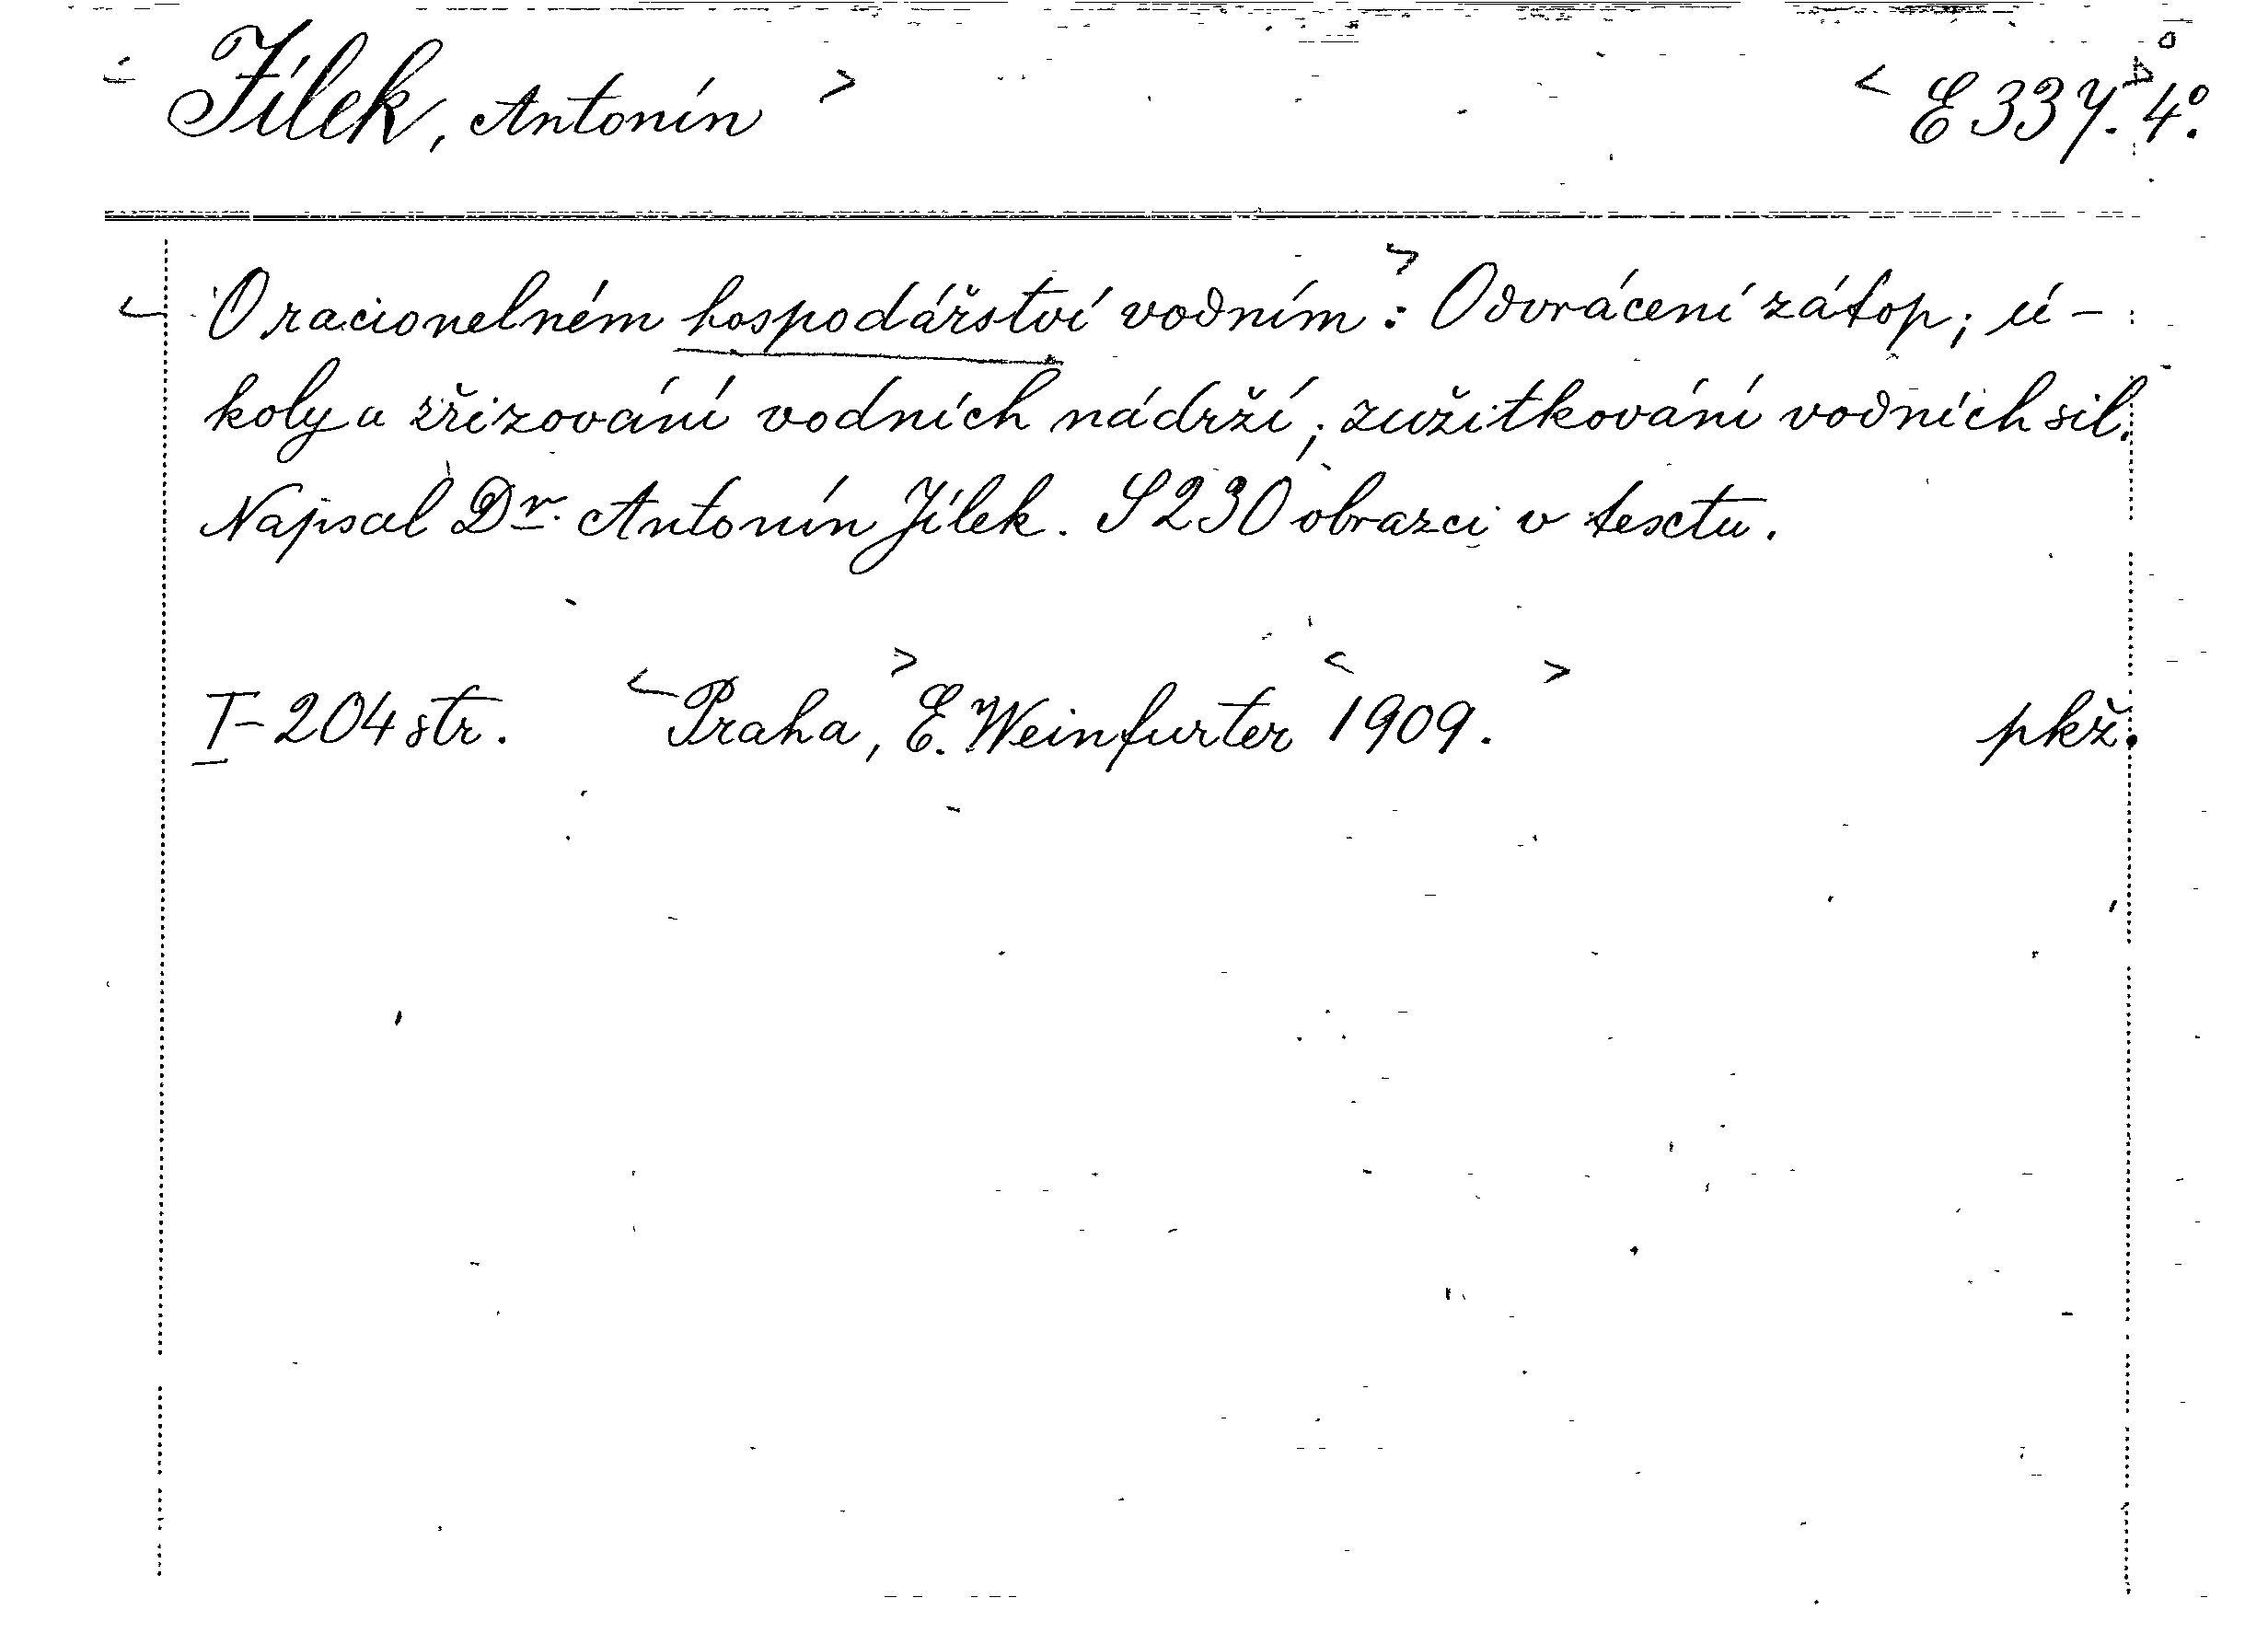 Jílek, Antonín
E 337. 4º.
O racionelném hospodářství vodním: Odvrácení zátop; ú-
koly a zřizování vodních nádrží; zužitkování vodních sil.
Napsal Dr. Antonín Jílek. S 230 obrazci v textu.
I-204 str. Praha, E. Weinfurter 1909. pkž.